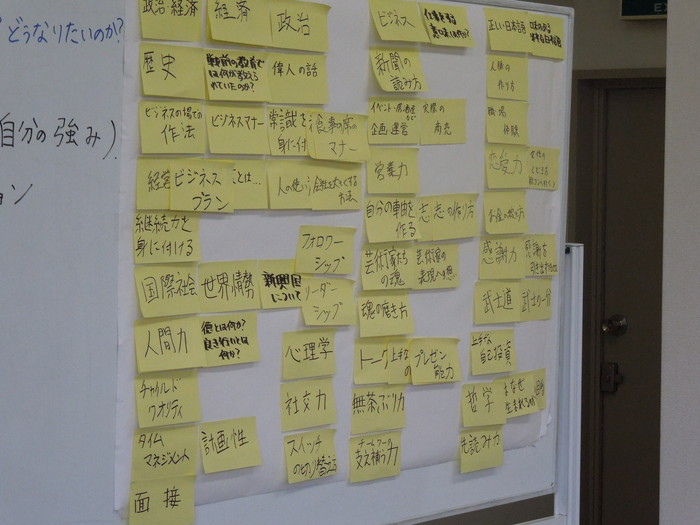 どうなりたいのか?
自分の強み)
ョン
政治経済
経済
政治
歴史
戦前の教育で
は何が教えら
れていたのか?
偉人の話
ビジネスの場での
作法
ビジネスマナー
常識を
身に付
食事の席の
マナー
経営
ビジネス
プラン
とは…
人の使い
会社を大きくする
方法
継続力を
身に付ける
フォロワー
シップ
国際社会
世界情勢
新興国
について
リーダー
シップ
人間力
徳とは何か?
良き行いとは
何か?
心理学
チャイルド
クオリティ
社交力
タイム
マネジメント
計画性
スイッチ
の切り替え
面接
ビジネス
新聞の
読み方
イベント・居酒屋
など
企画運営
実際の
商売
営業力
自分の事曲を
作る
志
志の作り方
芸術家たち
の魂
芸術家の
表現への想い
魂の磨き方
トーク
上手な
の
プレゼン
能力
無茶ぶり力
チームワークの
支え補う力
正しい日本語
人脈の
作り方
職場
体験
恋愛力
お金の使い方
感謝力
感謝を
武士道
武士の一分
上手な
自己投資
哲学
なぜ
生まれるのか
先読み力
EX